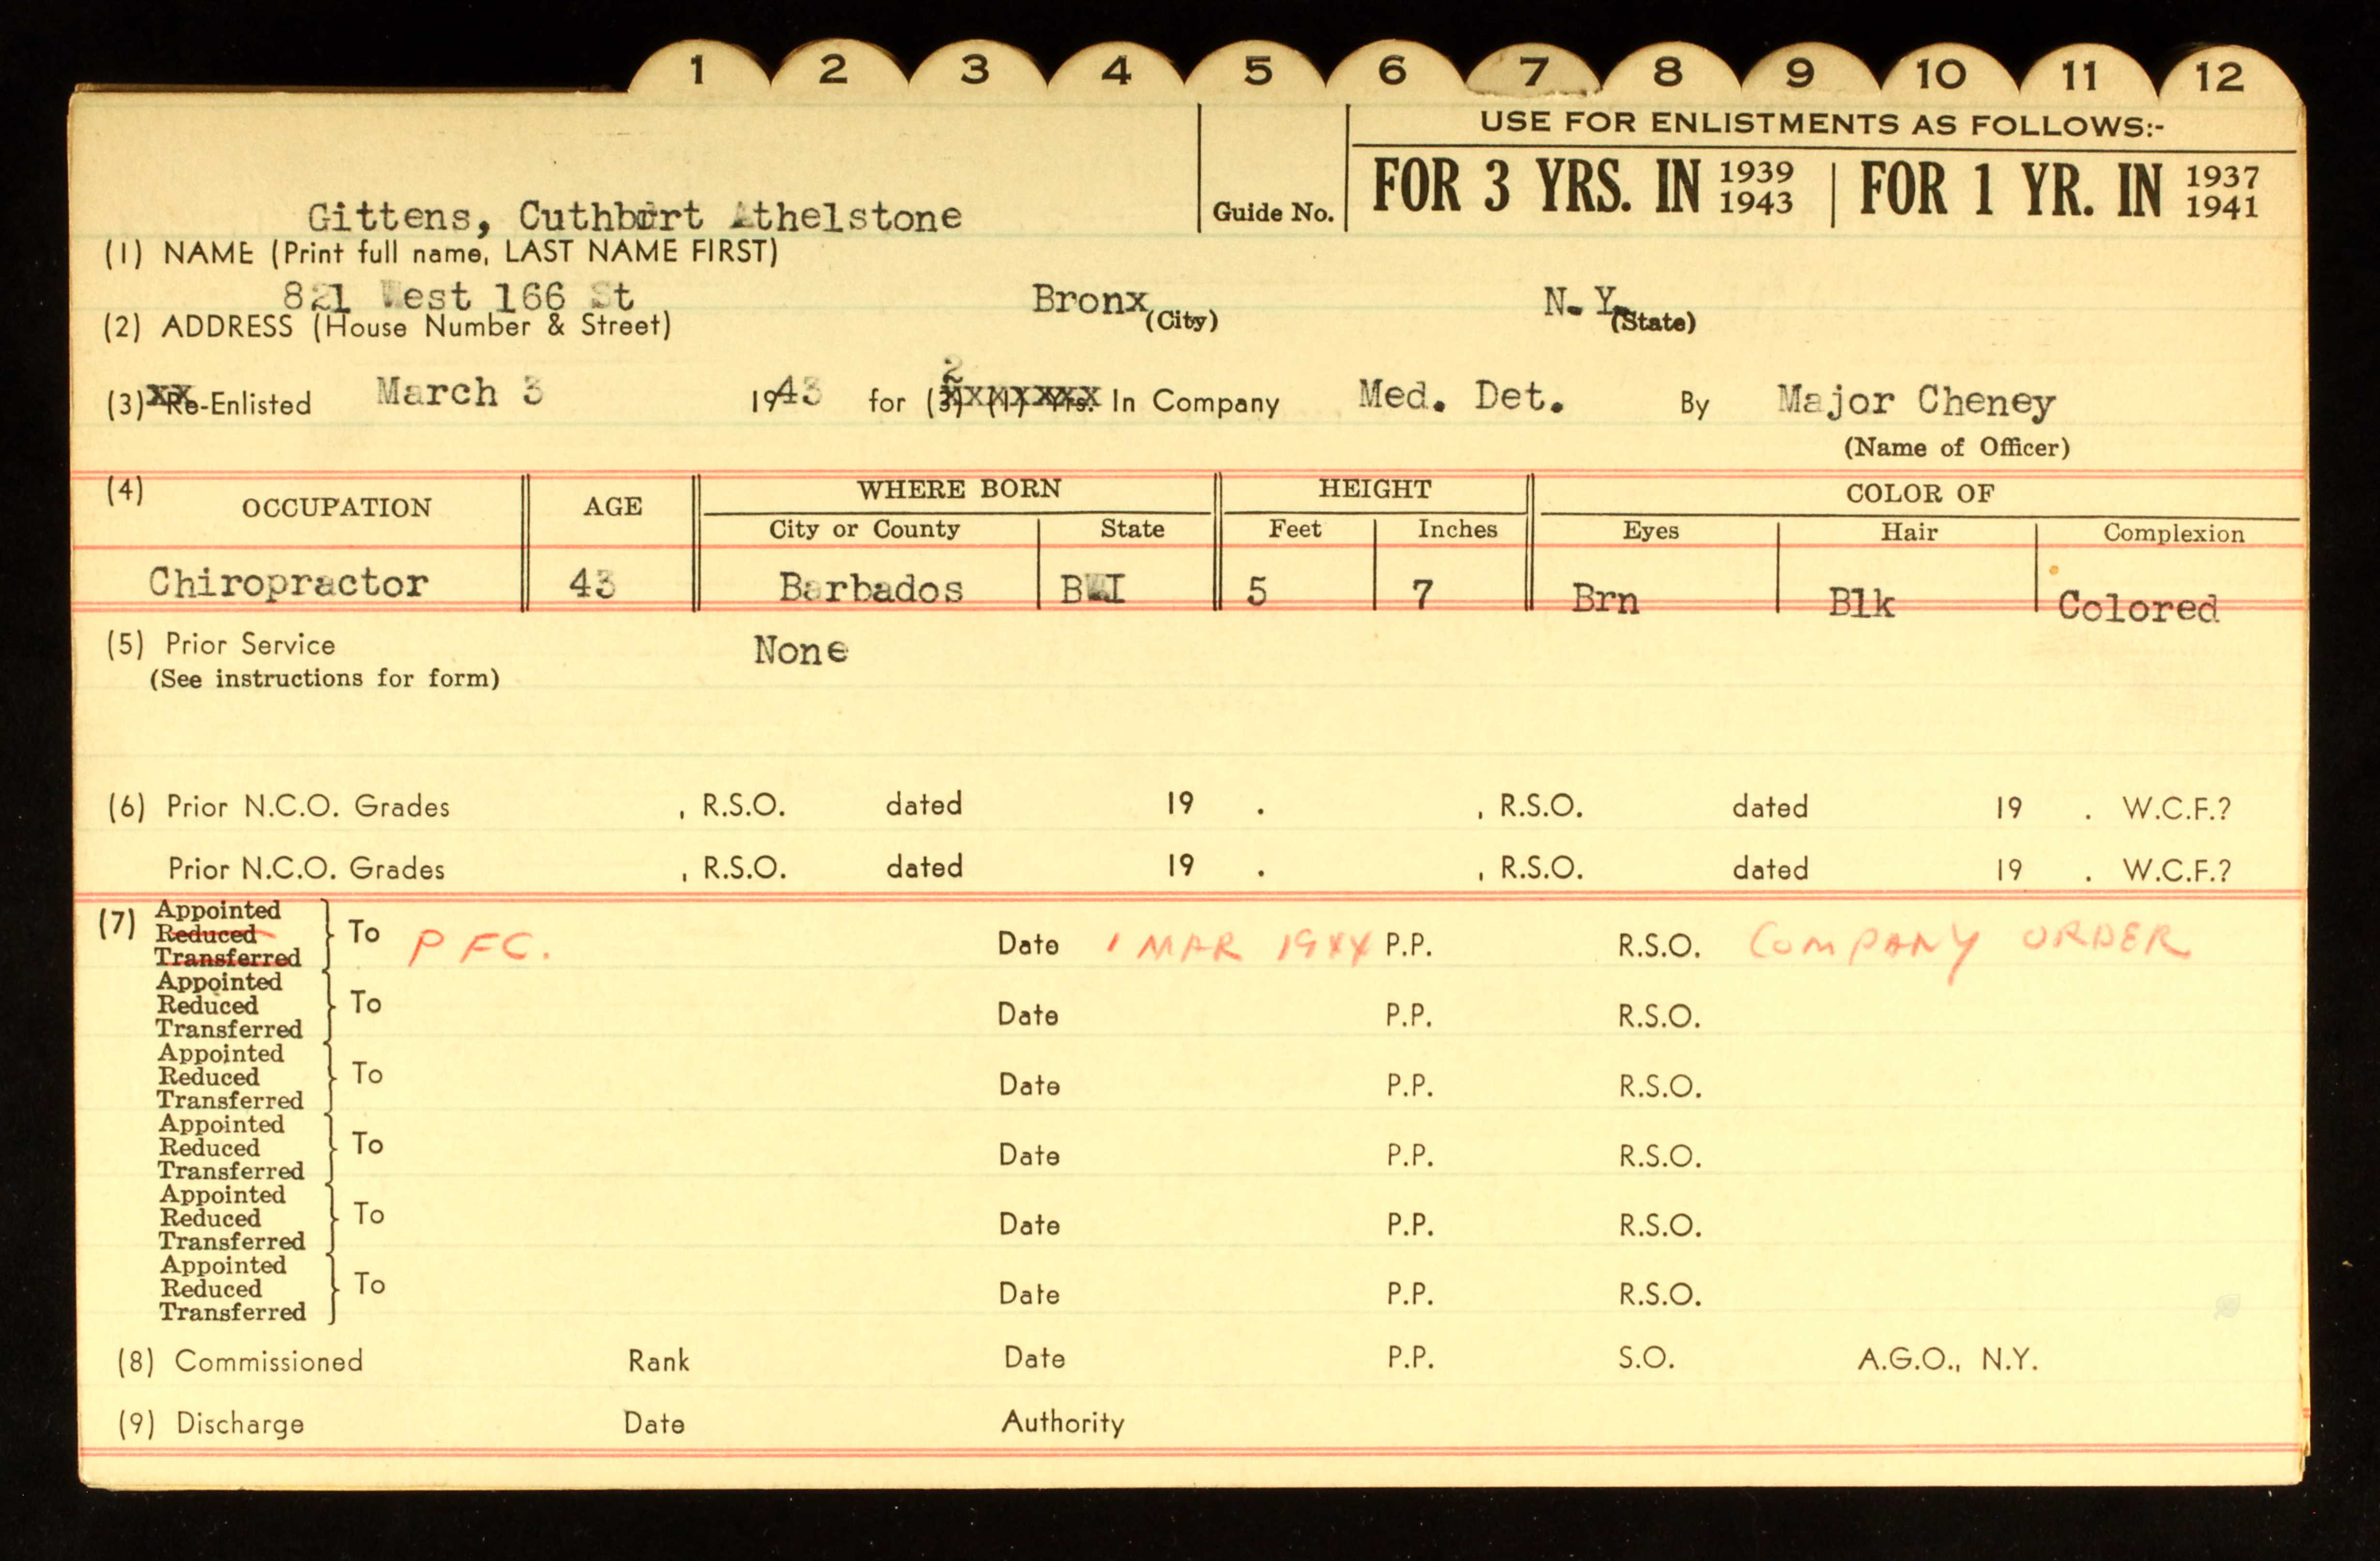 1 2 3 4 5 6 7 8 9 10 11 12
USE FOR ENLISTMENTS AS FOLLOWS:-
Guide No. FOR 3 YRS. IN 1939 1943 | FOR 1 YR. IN 1937 1941
Gittens, Cuthbert Athelstone
(1) NAME (Print full name, LAST NAME FIRST)
821 West 166 St Bronx N. Y.
(2) ADDRESS (House Number & Street) (City) (State)
2
(3) Re-Enlisted March 3 1943 for (3) (1) Yrs. In Company Med. Det. By Major Cheney
(Name of Officer)
(4) OCCUPATION AGE WHERE BORN HEIGHT COLOR OF
City or County State Feet Inches Eyes Hair Complexion
Chiropractor 43 Barbados BWI 5 7 Brn Blk Colored
(5) Prior Service None
(See instructions for form)
(6) Prior N.C.O. Grades , R.S.O. dated 19 . , R.S.O. dated 19 . W.C.F.?
Prior N.C.O. Grades , R.S.O. dated 19 . , R.S.O. dated 19 . W.C.F.?
(7) Appointed
Reduced To PFC. Date 1 MAR 1944 P.P. R.S.O. COMPANY ORDER
Transferred
Appointed
Reduced To Date P.P. R.S.O.
Transferred
Appointed
Reduced To Date P.P. R.S.O.
Transferred
Appointed
Reduced To Date P.P. R.S.O.
Transferred
Appointed
Reduced To Date P.P. R.S.O.
Transferred
Appointed
Reduced To Date P.P. R.S.O.
Transferred
(8) Commissioned Rank Date P.P. S.O. A.G.O., N.Y.
(9) Discharge Date Authority